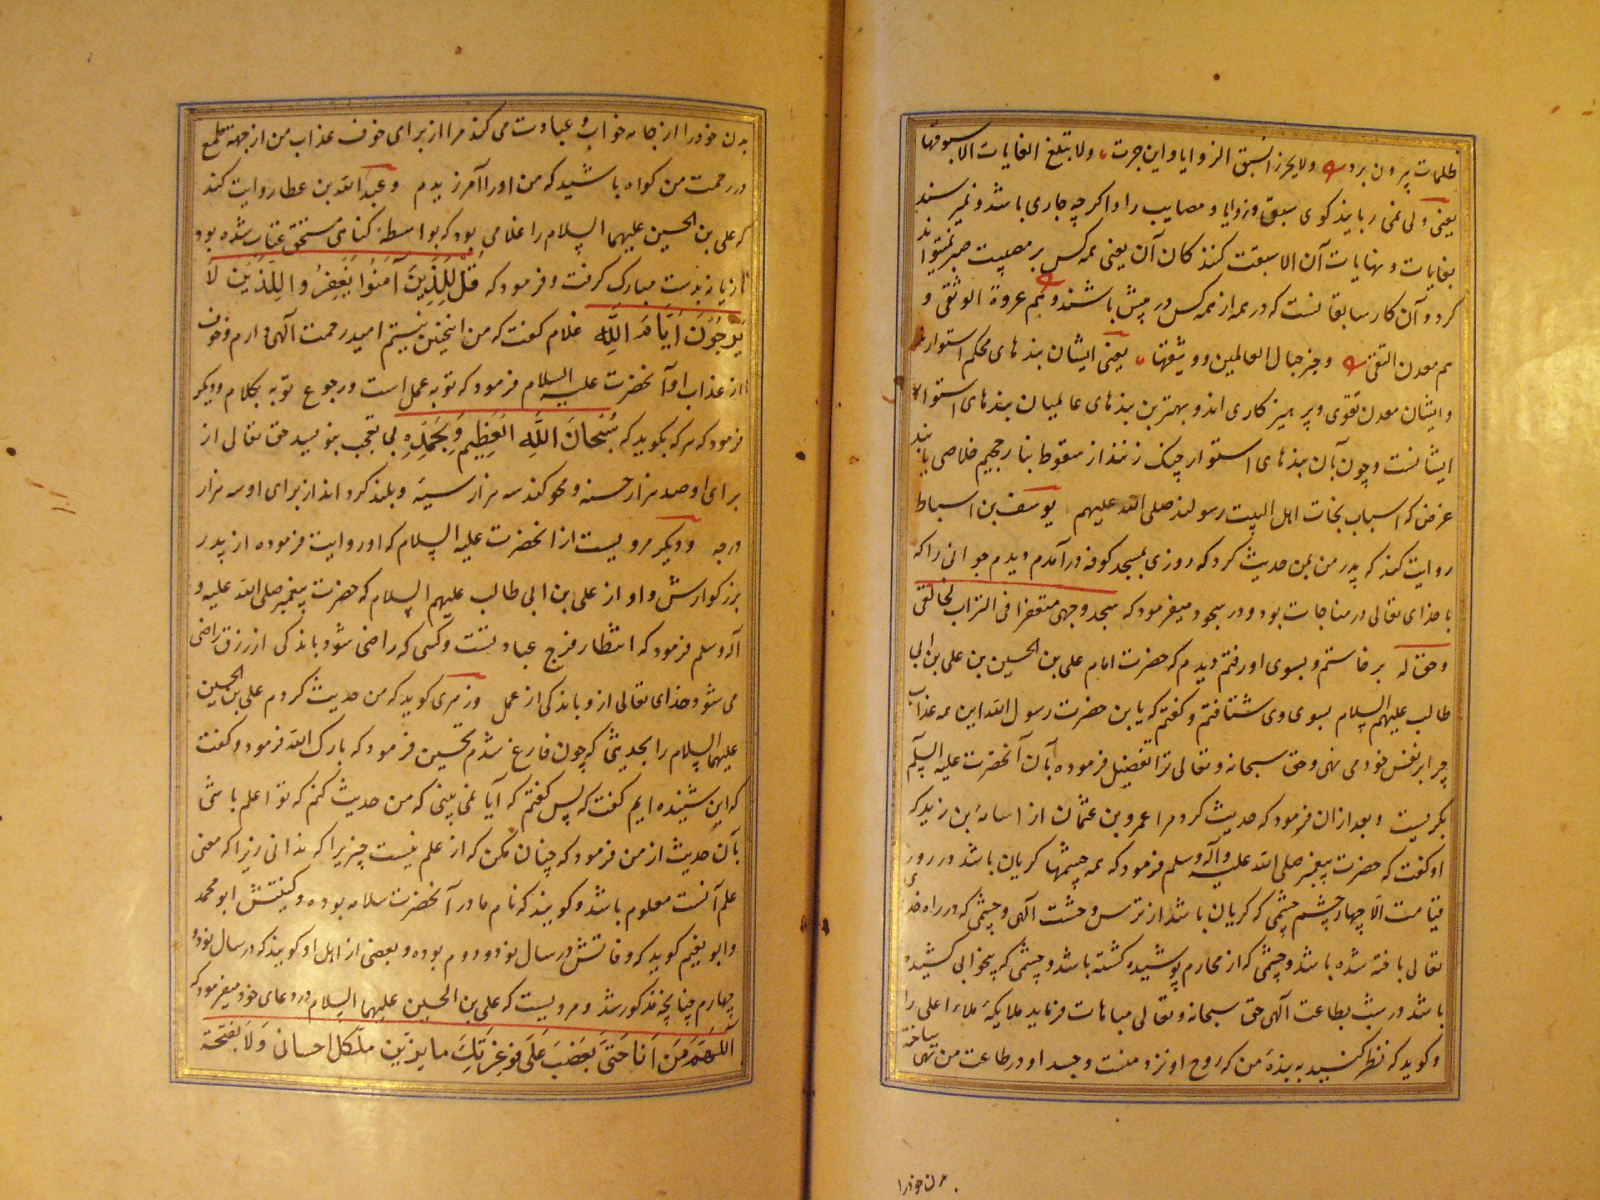 ظلمات بیرون برد و ولا یحرز السبق الزوایا وان جرت ولا یبلغ الغایات الا سبوقها
یعنی ولی نمی ربایند کوی سبق وزوایا و مصایب را و اکرچه جاری باشد و نمیرسند
بغایات و نهایات آن الا سبقت کنندکان آن یعنی همه کس بر مصیبت صبر نمیتواند
کرد و آن کار سابقانست که در همه از همه کس در پیش باشند و هم عروة الوثقی و
هم معدن التقی و خیر حبال العالمین و وثیقها یعنی ایشان بندهای محکم استوارند
و ایشان معدن تقوی و پرهیزکاری اند و بهترین بندهای عالمیان بندهای استوار
ایشانست و چون بآن بندهای استوار چنک زنند از سقوط بنار جحیم خلاصی یابند
غرض که اسباب نجات اهل البیت رسولند صلی الله علیهم یوسف بن اسباط
روایت کند که پدر من بمن حدیث کرد که روزی بمسجد کوفه درآمدم دیدم جوانی را که
با خدای تعالی در مناجات بود و در سجود میفرمود که سجد وجهی متعفرا فی التراب لخالقی
وحق له برخاستم و بسوی او رفتم دیدم که حضرت امام علی بن الحسین بن علی بن ابی
طالب علیهم السلام بسوی وی شتافتم و کفتم که یا بن حضرت رسول الله این همه عذاب
چرا بر نفس خود می نهی و حق سبحانه و تعالی ترا تفضیل فرموده بآن آنحضرت علیه السلم
بکریست و بعد از آن فرمود که حدیث کرد مرا عمرو بن عثمان از اسامه بن زید که
او کفت که حضرت پیغمبر صلی الله علیه و آله وسلم فرمود که همه چشمها کریان باشد در روز
قیامت الا چهار چشم چشمی که کریان باشد از ترس و خشیت آلهی و چشمی که در راه خدای
تعالی بافته شده باشد و چشمی که از محارم پوشیده کشته باشد و چشمی که بیخوابی کشیده
باشد در شب بطاعت آلهی حق سبحانه و تعالی مباهات فرماید ملایکه ملاء اعلی را
و کوید که نظر کنید به بنده من که روح او نزد منست و جسد او در طاعت من تهی ساخته
بدن خود را
بدن خود را از جامه خواب و عبادت می کند مرا از برای خوف عذاب من از جهة طمع
در رحمت من کواه باشید که من او را آمرزیدم و عبد الله بن عطا روایت کند
که علی بن الحسین علیهما السلام را غلامی بود که بواسطه کناهی مستحق عتاب شده بود
تازیانه بدست مبارک کرفت و فرمود که قُلْ لِلَّذِينَ آمَنُوا يَغْفِرُوا لِلَّذِينَ لَا
يَرْجُونَ أَيَّامَ اللَّهِ غلام کفت که من اینچنین نیستم امید رحمت آلهی دارم و خوف
از عذاب او آنحضرت علیه السلام فرمود که توبه عمل است و رجوع توبه بکلام و دیکر
فرمود که هر که بکوید که سُبْحَانَ اللَّهِ الْعَظِيمِ وَبِحَمْدِهِ بی تعجب بنویسد حق تعالی از
برای او صد هزار حسنه و محو کند سه هزار سیئه و بلند کرداند از برای او سه هزار
درجه و دیکر مرویست از آنحضرت علیه السلام که او روایت فرموده از پدر
بزرکوارش و او از علی بن ابی طالب علیهم السلام که حضرت پیغمبر صلی الله علیه و
آله وسلم فرمود که انتظار فرج عبادتست و کسی که راضی شود باندکی از رزق راضی
می شود خدای تعالی از و باندکی از عمل و زهری کوید که من حدیث کردم علی بن الحسین
علیهما السلام را بحدیثی که چون فارغ شدم تحسین فرمود که بارک الله فرمود و کفت
که این شنیده ایم کفت که پس کفتم که آیا نمی بینی که من حدیث کنم که تو اعلم باشی
بآن حدیث از من فرمود که چنان مکن که از علم نیست چیزی را که ندانی زیرا که معنی
علم آنست معلوم باشد و کویند که نام مادر آنحضرت سلامه بوده و کنیتش ابو محمد
و ابو نعیم کوید که وفاتش در سال نود و دوم بوده و بعضی از اهل او کویند که در سال نود و
چهارم چنانچه مذکور شد و مرویست که علی بن الحسین علیهما السلام در دعای خود میفرمود که
اَللّٰهُمَّ مَنْ اَنَا حَتّٰی تَغْضَبَ عَلَیَّ فَوَعِزَّتِكَ ما یزین ملکك احسانی وَلَا یقبحه